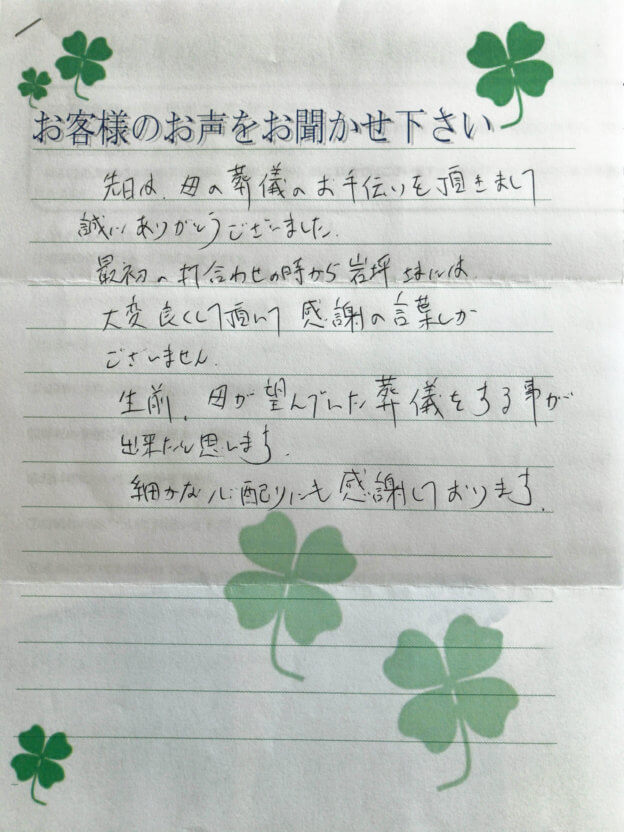 お客様のお声をお聞かせ下さい
先日は、母の葬儀のお手伝いを頂きまして
誠にありがとうございました.
最初の打合わせの時から岩坪さまには
大変良くして頂いて感謝の言葉しか
ございません.
生前、母が望んでいた葬儀をする事が
出来たと思います.
細かな心配りにも感謝しております.